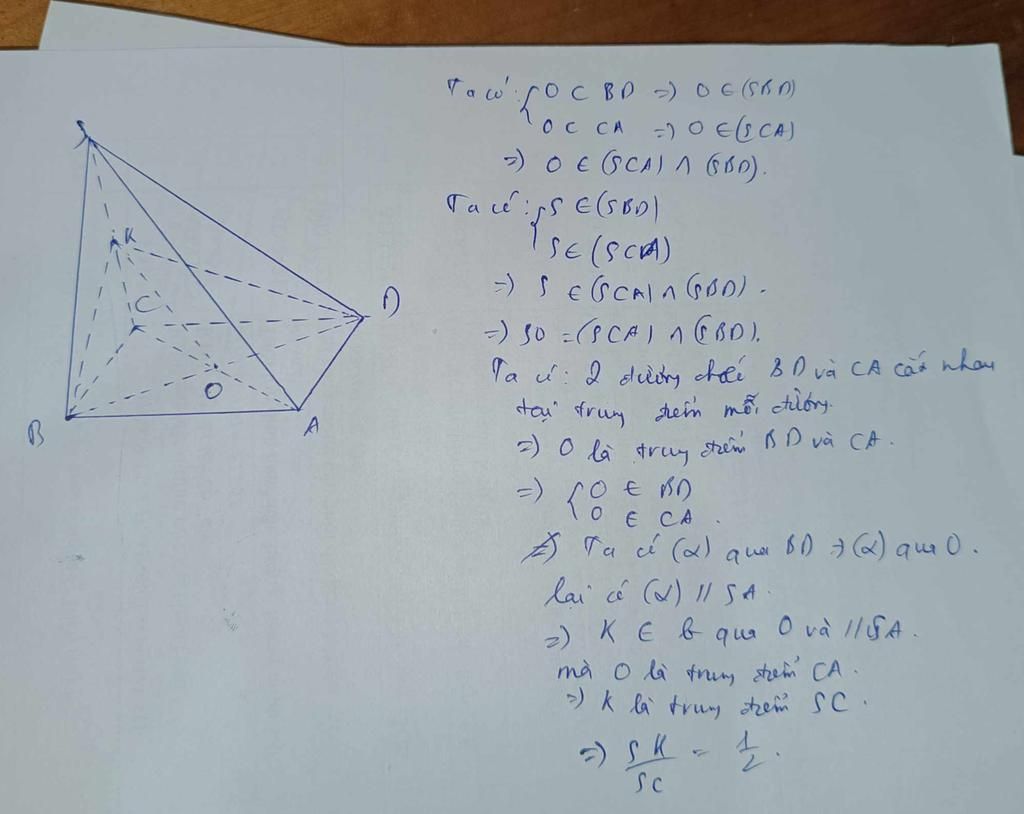 S
K
C
D
O
B
A
Ta có: { O ⊂ BD => O ∈ (SBD)
O ⊂ CA => O ∈ (SCA)
=> O ∈ (SCA) ∩ (SBD).
Ta có: { S ∈ (SBD)
S ∈ (SCA)
=> S ∈ (SCA) ∩ (SBD).
=> SO = (SCA) ∩ (SBD).
Ta có: 2 đường chéo BD và CA cắt nhau
tại trung điểm mỗi đường.
=> O là trung điểm BD và CA.
=> { O ∈ BD
O ∈ CA.
Ta có (α) qua BD => (α) qua O.
lại có (α) // SA.
=> K ∈ b qua O và // SA.
mà O là trung điểm CA.
=> K là trung điểm SC.
=> SK/SC = 1/2.